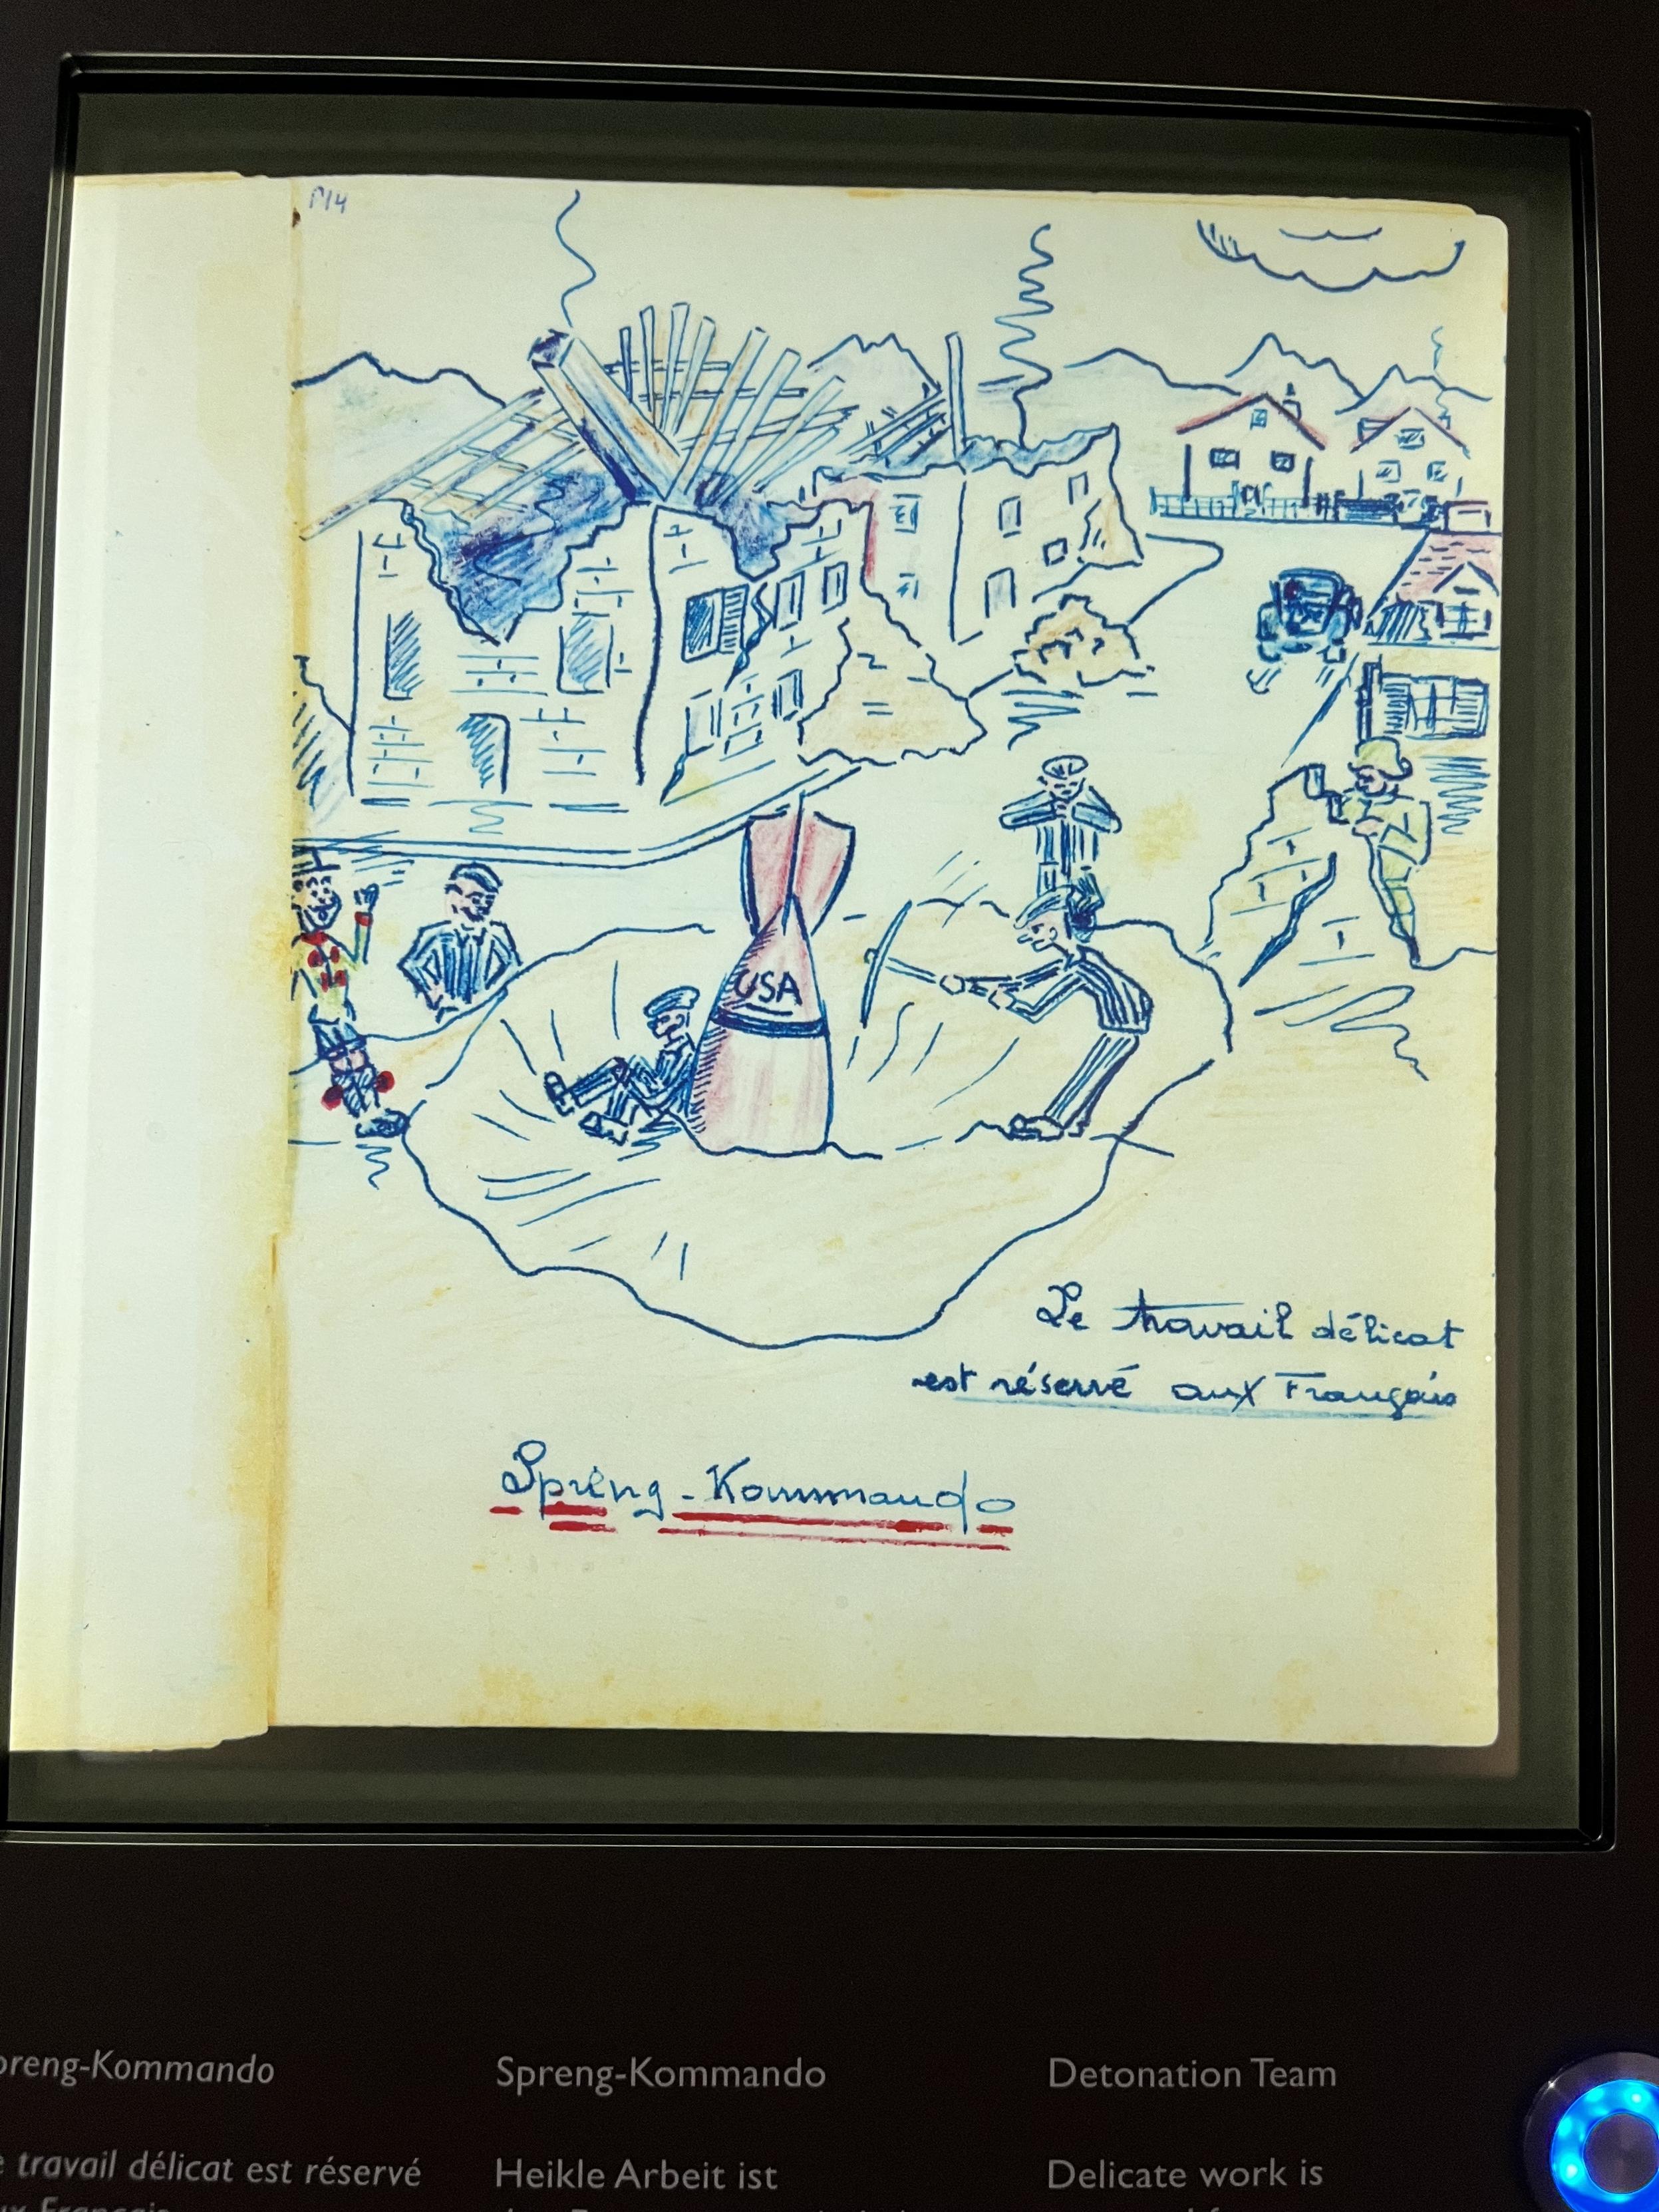 P14
USA
Le travail délicat
est réservé aux Français
Spreng-Kommando
preng-Kommando
travail délicat est réservé
Spreng-Kommando
Heikle Arbeit ist
Detonation Team
Delicate work is